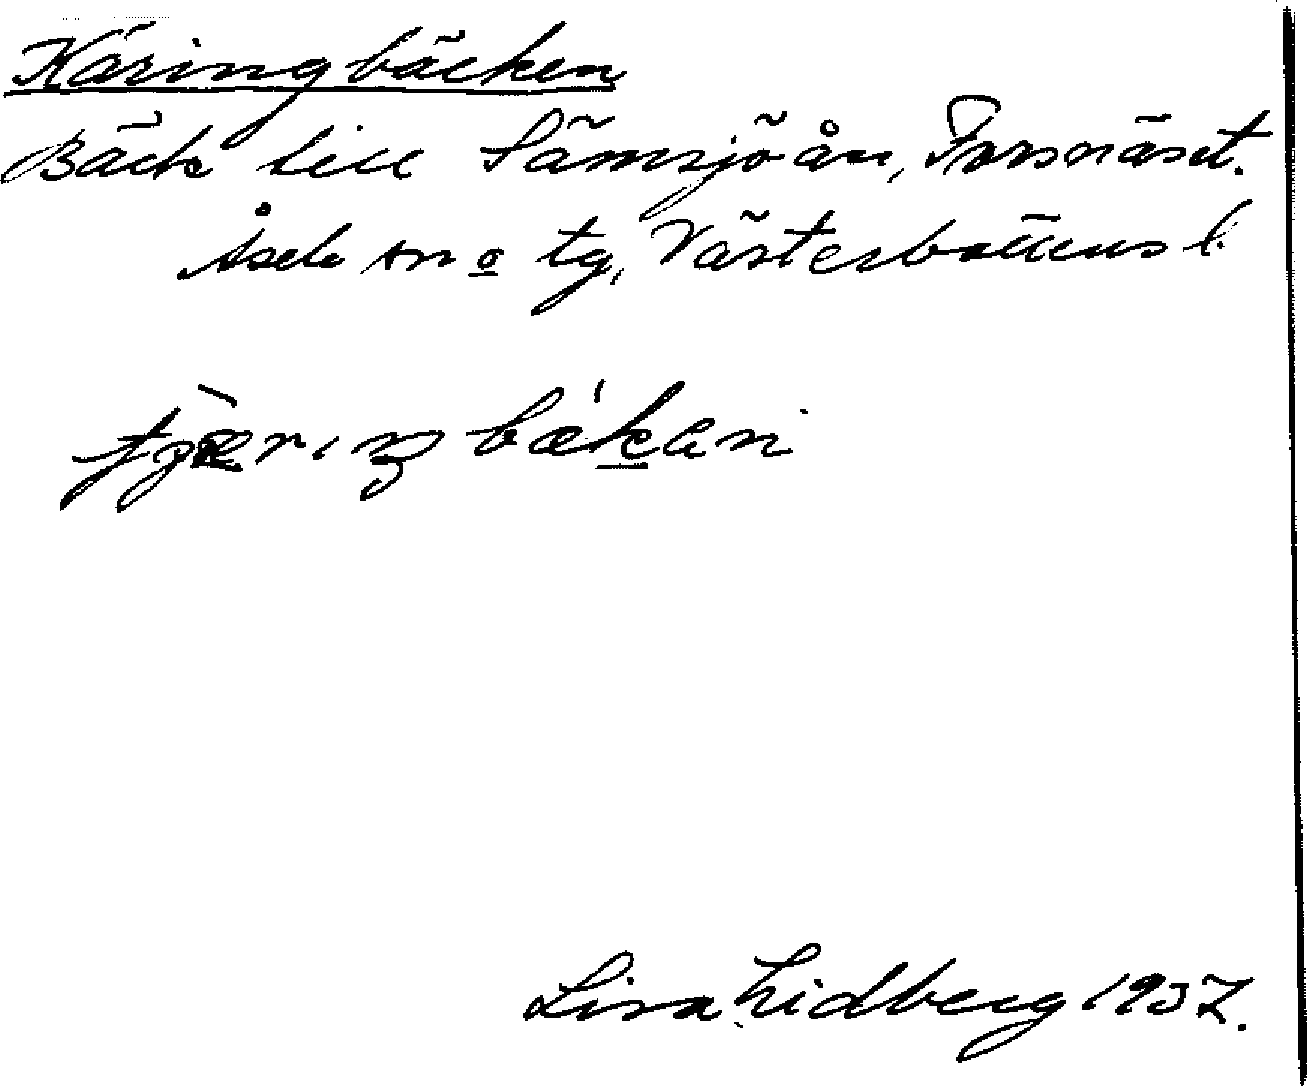 Käringbäcken
Bäck till Sämsjöån, Forsnäset.
Åsele sn o tg, Västerbottens l.
Lisa Lidberg 1937.